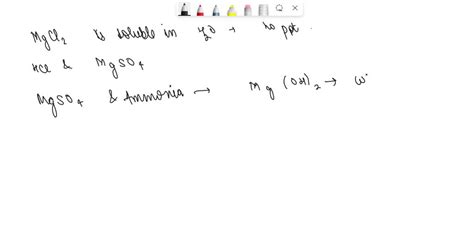 MgCl2 is soluble in H2O → no ppt.
HCl & MgSO4
MgSO4 & Ammonia → Mg(OH)2 → w